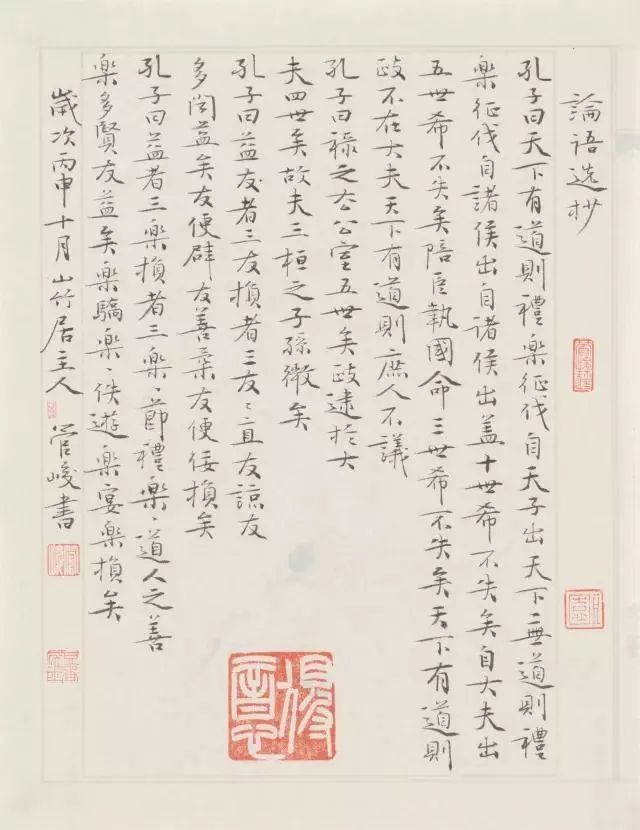 論语选抄
孔子曰天下有道則禮樂征伐自天子出天下無道則禮
樂征伐自諸侯出自諸侯出盖十世希不失矣自大夫出
五世希不失矣陪臣執國命三世希不失矣天下有道則
政不在大夫天下有道則庶人不議
孔子曰禄之去公室五世矣政逮於大
夫四世矣故夫三桓之子孫微矣
孔子曰益友者三友損者三友〻直友諒友
多闻益矣友便辟友善柔友便佞損矣
孔子曰益者三樂損者三樂〻節禮樂〻道人之善
樂多賢友益矣樂驕樂〻佚遊樂宴樂損矣
歲次丙申十月山竹居主人管峻書